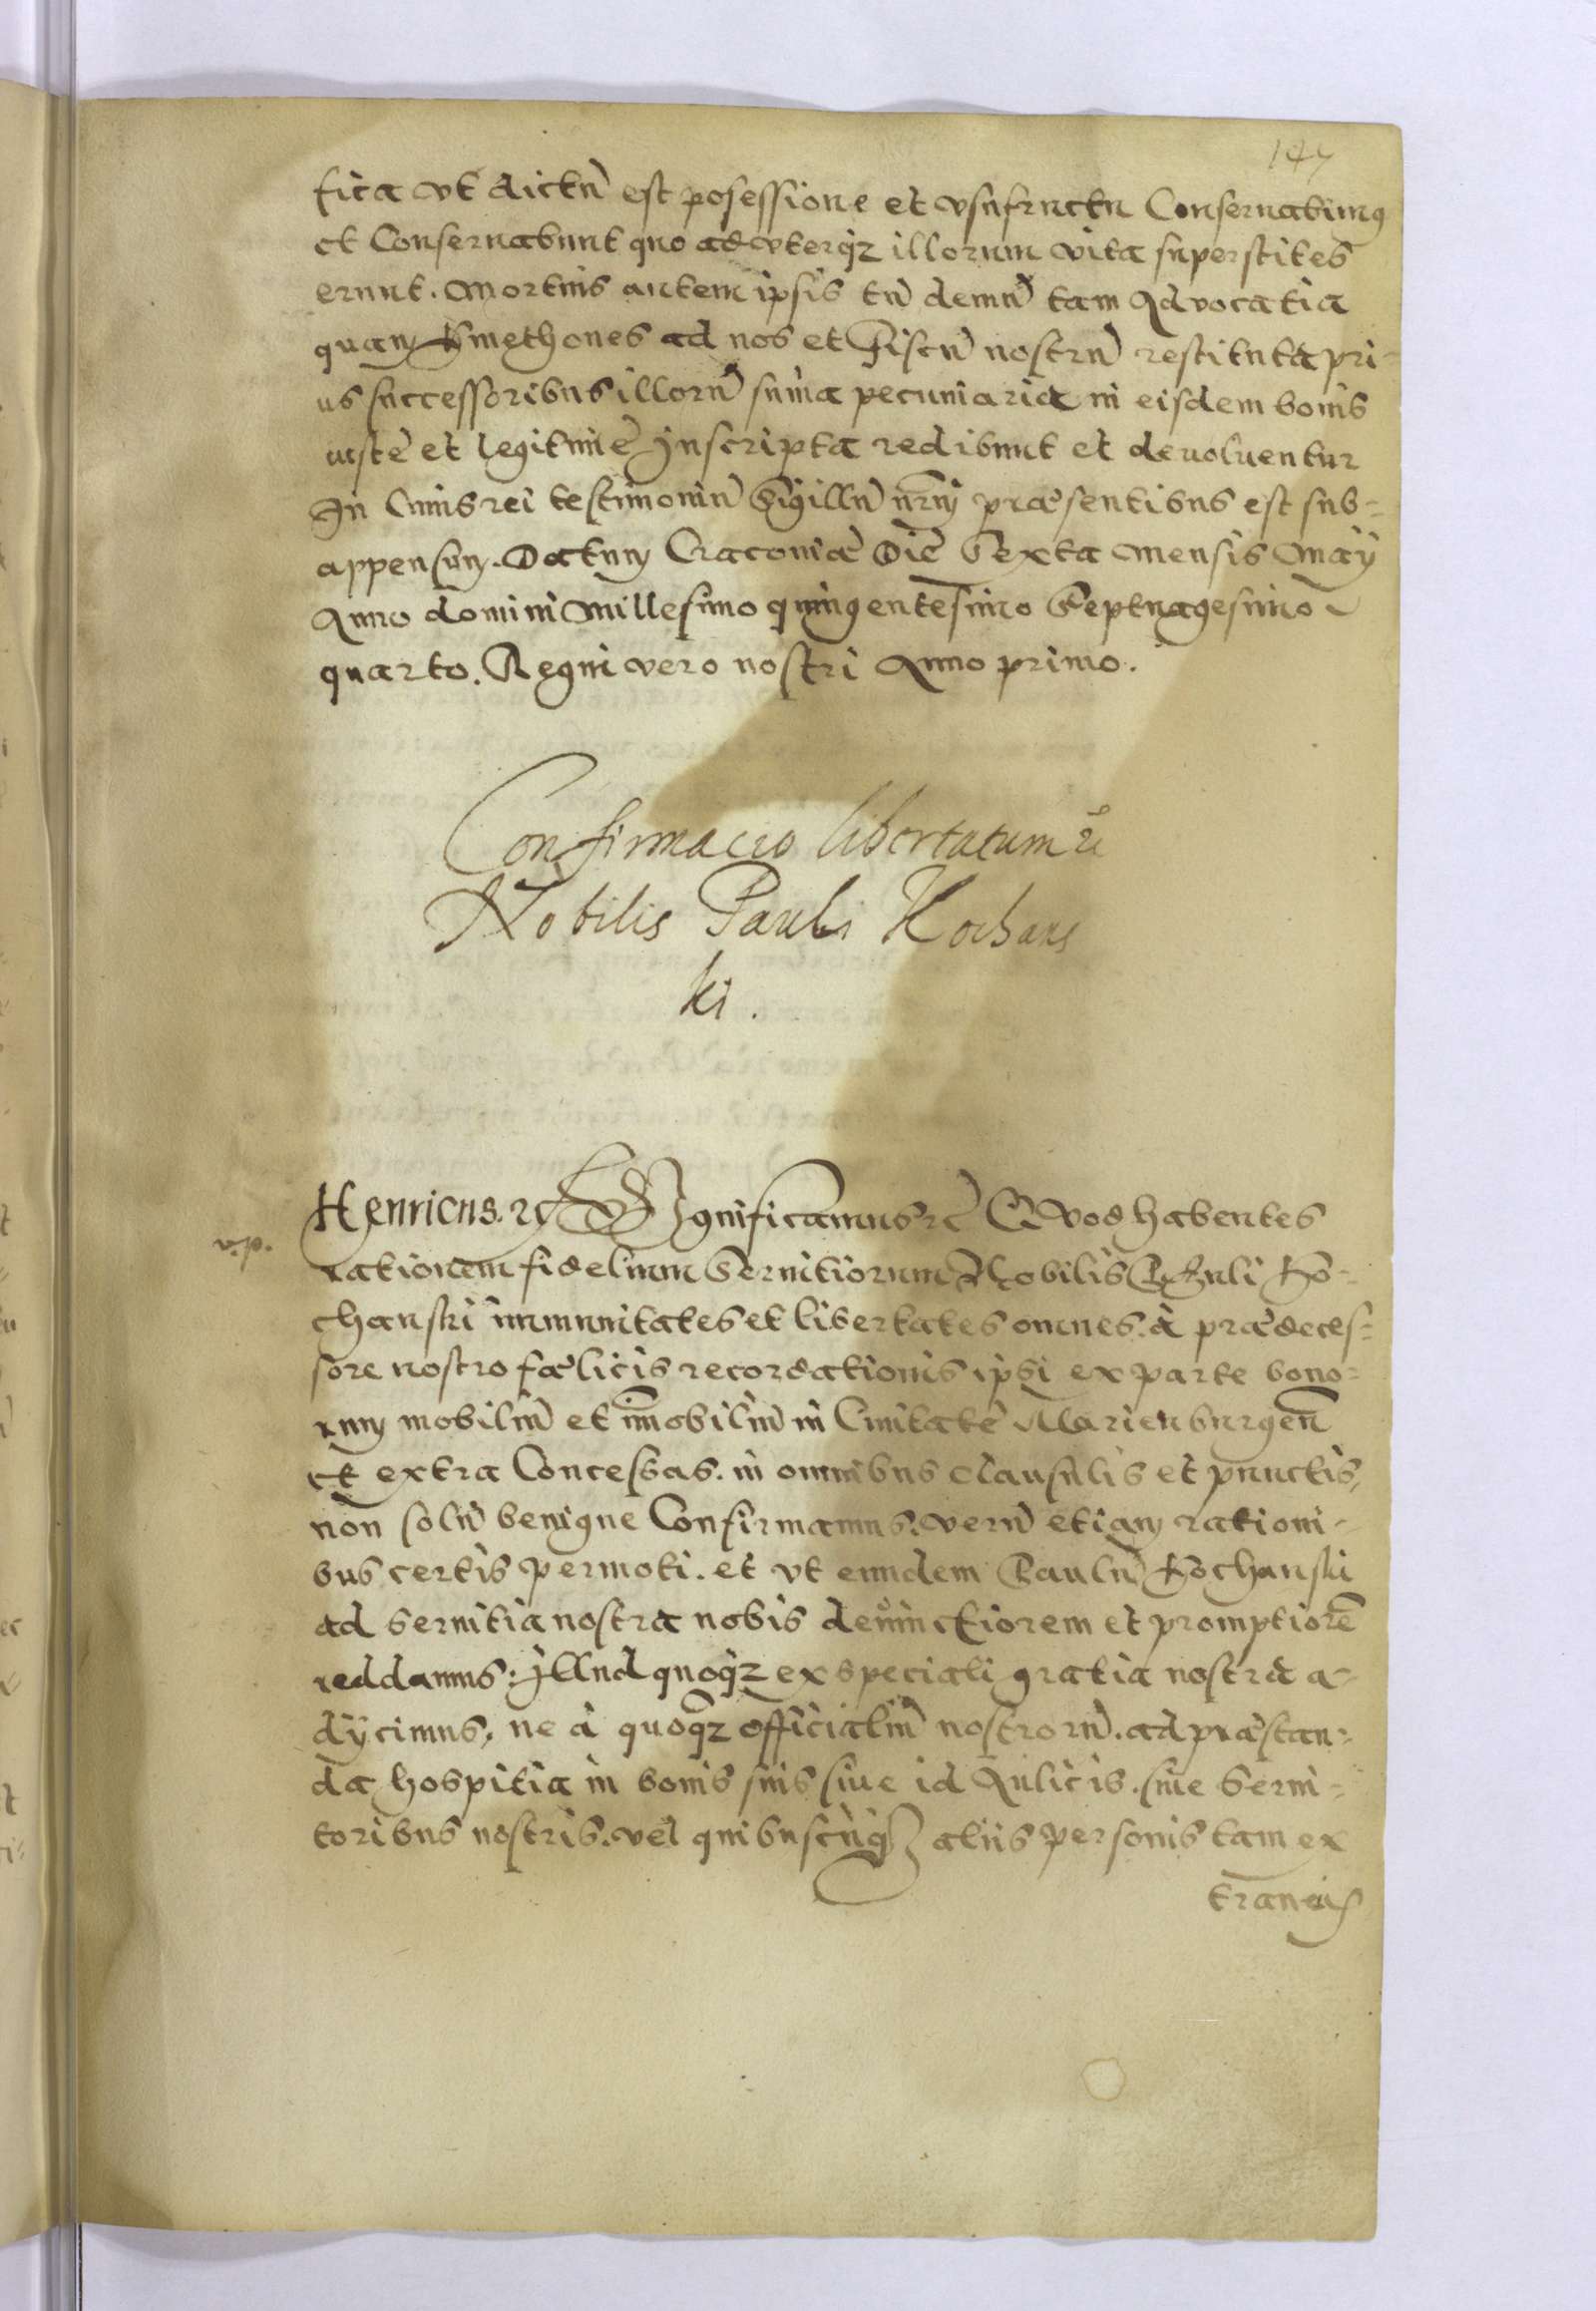 147
fica vt dictũ est posessione et vsufructu Conseruabimus
et Conseruabunt quo ad vterqz illorum vita superstites
erunt. Mortuis autem ipsis tũ demũ tam Aduocatia
quam Kmethones ad nos et Fiscũ nostrũ restituta pri-
us successoribus illorũ suma pecuniaria in eisdem bonis
iuste et legitime Inscripta redibunt et deuoluentur
In Cuius rei testimoniũ Sigillũ nrm præsentibus est sub-
appensum. Datum Cracouiæ Die Sexta mensis May
Anno domini Millesimo quingentesimo Septuagesimo
quarto. Regni vero nostri Anno primo.
Confirmacio libertatum &c
Nobilis Pauli Kochans
ki.
Henricus. &c Significamus &c Quod habentes
rationem fidelium Seruitiorum Nobilis Pauli Ko-
chanski immunitates et libertates omnes. à prædeces-
sore nostro fælicis recordationis ipsi ex parte bono-
rum mobiliũ et im̃obiliũ in Ciuitate Marienburgen̄
et extra Concessas. in omnibus clausulis et punctis,
non solũ benigne Confirmamus. verũ etiam rationi-
bus certis permoti. et vt eundem Paulũ Kochanski
ad seruitia nostra nobis deuinctiorem et promptiorē
reddamus: Illud quoqz ex speciali gratia nostra a-
dÿcimus, ne à quoqz officialiũ nostrorũ. ad præstan-
da hospitia in bonis suis siue id Aulicis. siue Serui-
toribus nostris. vel quibuscũqz aliis personis tam ex
traneis